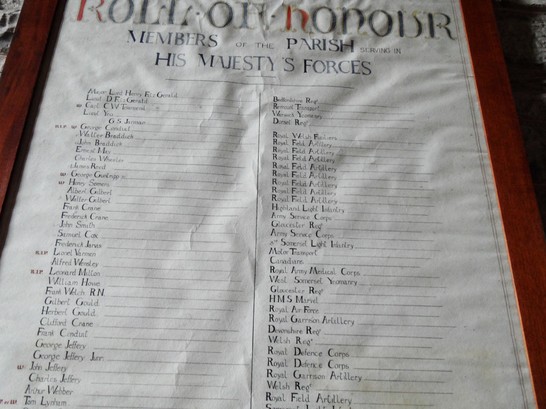 ROLL·OF·HONOUR
MEMBERS OF THE PARISH SERVING IN
HIS MAJESTY'S FORCES
Major Lord Henry Fitz Gerald Bedfordshire Regt
Lieut. D. Fitz Gerald Remount Transport
Capt. C.W. Warwick Yeomanry
Lieut. Dorset Regt
G.S. Jarman
R.I.P. George Conduit Royal Welsh Fusiliers
Walter Braddick Royal Field Artillery
John Braddick Royal Field Artillery
Ernest May Royal Field Artillery
Charles Wheeler Royal Field Artillery
James Reed Royal Field Artillery
George Royal Field Artillery
Henry Semens Royal Field Artillery
Albert Gilbert Royal Field Artillery
Walter Gilbert Highland Light Infantry
Frank Crane Army Service Corps
Frederick Crane Gloucester Regt
John Smith Army Service Corps
Samuel Cox Somerset Light Infantry
Frederick Jarvis Motor Transport
R.I.P. Lionel Vannan Canadians
Alfred Wensley Royal Army Medical Corps
R.I.P. Leonard Milton West Somerset Yeomanry
William House Gloucester Regt
Frank Welch R.N. H.M.S. Marvel
Gilbert Gould Royal Air Force
Herbert Gould Royal Garrison Artillery
Clifford Crane Devonshire Regt
Frank Conduit Welsh Regt
George Jeffery Royal Defence Corps
George Jeffery Junr. Royal Defence Corps
John Jeffery Royal Garrison Artillery
Charles Jeffery Welsh Regt
Arthur Webber Royal Field Artillery
Tom Lynham Light Infantry